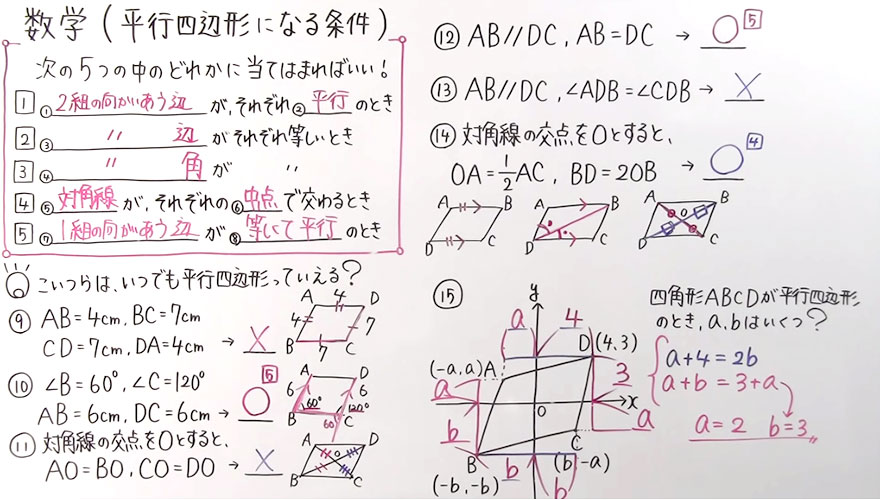 数学(平行四辺形になる条件)
次の5つの中のどれかに当てはまればいい!
1 ①2組の向かいあう辺が、それぞれ②平行のとき
2 ③ 〃 辺がそれぞれ等しいとき
3 ④ 〃 角が 〃
4 ⑤対角線が、それぞれの⑥中点で交わるとき
5 ⑦1組の向かいあう辺が⑧等しくて平行のとき
こいつらは、いつでも平行四辺形っていえる?
⑨ AB=4cm, BC=7cm
CD=7cm, DA=4cm → ×
A 4 D
4 7
B 7 C
⑩ ∠B=60°, ∠C=120°
AB=6cm, DC=6cm → ○ 5
A D
6 6
60° 120°
B 60° C
⑪ 対角線の交点をOとすると、
AO=BO, CO=DO → ×
A D
O
B C
⑫ AB//DC, AB=DC → ○ 5
⑬ AB//DC, ∠ADB=∠CDB → ×
⑭ 対角線の交点をOとすると、
OA=1/2AC, BD=2OB → ○ 4
A B
D C
A B
D C
A B
O
D C
⑮
四角形ABCDが平行四辺形
のとき、a,bはいくつ?
a+4=2b
a+b=3+a
a=2 b=3
y
a 4
D(4,3)
(-a,a)A
a 3
O x
b a
C
B b (b,-a)
(-b,-b) b